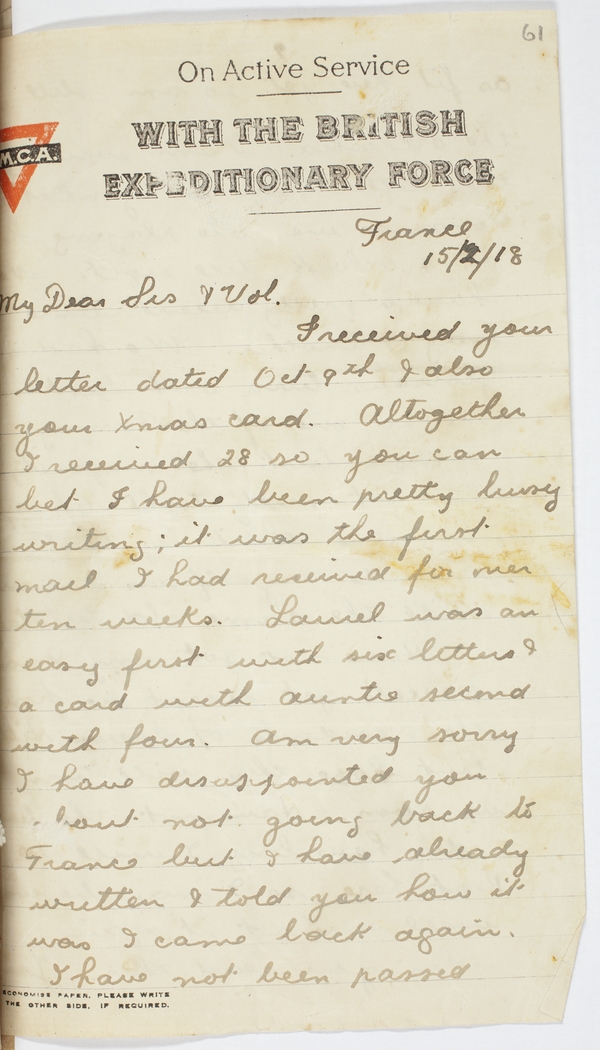 61
On Active Service
WITH THE BRITISH
EXPEDITIONARY FORCE
M.C.A.
France
15/2/18
My Dear Sis & Vol.
I received your
letter dated Oct 9th & also
your Xmas card. Altogether
I received 28 so you can
bet I have been pretty busy
writing; it was the first
mail I had received for over
ten weeks. Laurel was an
easy first with six letters &
a card with auntie second
with four. Am very sorry
I have disappointed you
bout not going back to
France but I have already
written & told you how it
was I came back again.
I have not been passed
ECONOMISE PAPER. PLEASE WRITE
THE OTHER SIDE, IF REQUIRED.